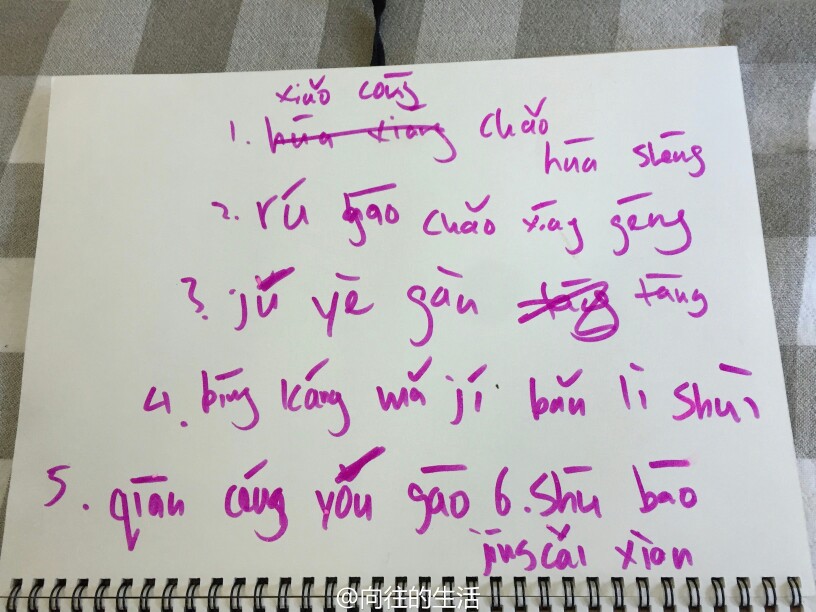 xiǎo cōng
1. hūa xiāng chǎo
hūa shēng
2. rú gāo chǎo xiāg gēng
3. jǔ yè gàn tāng tāng
4. bīng káng mǎ jí bǎn lì shuī
5. qīan cáng yǒu gāo 6. shū bāo
jīngcǎi xiàn
@向往的生活